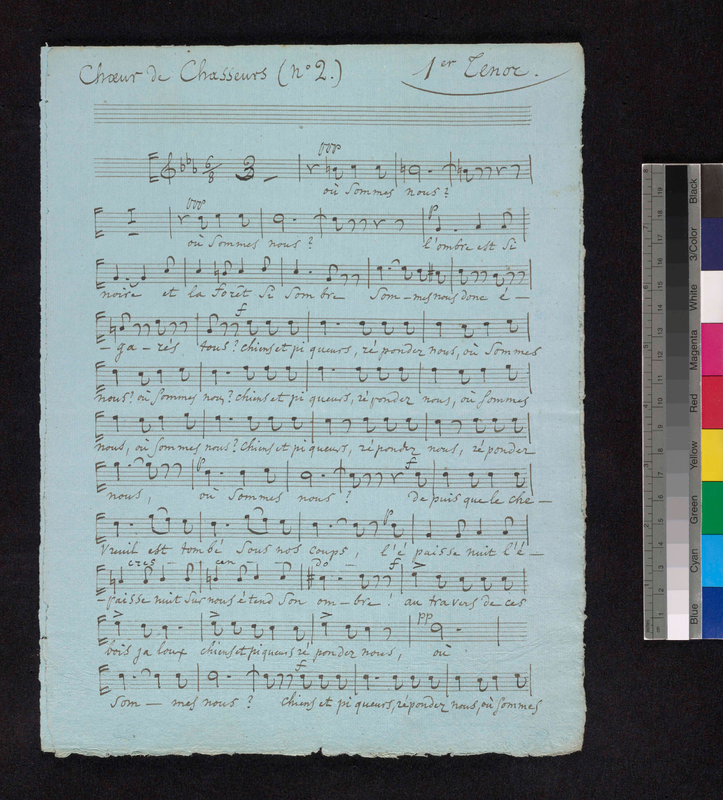 Chœur de Chasseurs (n° 2.)
1er Tenor.
ppp
6/8 3
où Sommes nous?
ppp p
où Sommes nous? l'ombre est Si
noire et la Forêt Si Sombre Som-mes nous donc é-
f
-ga-rés tous? chiens et piqueurs, répondez nous, où Sommes
nous? où Sommes nous? chiens et piqueurs, répondez nous, où Sommes
nous, où Sommes nous? chiens et piqueurs, répondez nous, répondez
p f
nous, où Sommes nous? Depuis que le che-
p
vreuil est tombé Sous nos coups, l'épaisse nuit l'é-
cres - cen - do - f
-paisse nuit Sur nous étend Son om-bre! au travers de ces
pp
bois jaloux chiens et piqueurs répondez nous, où
f
Som-mes nous? Chiens et piqueurs, répondez nous, où Sommes
Black
3/Color
White
Magenta
Red
Yellow
Green
Cyan
Blue